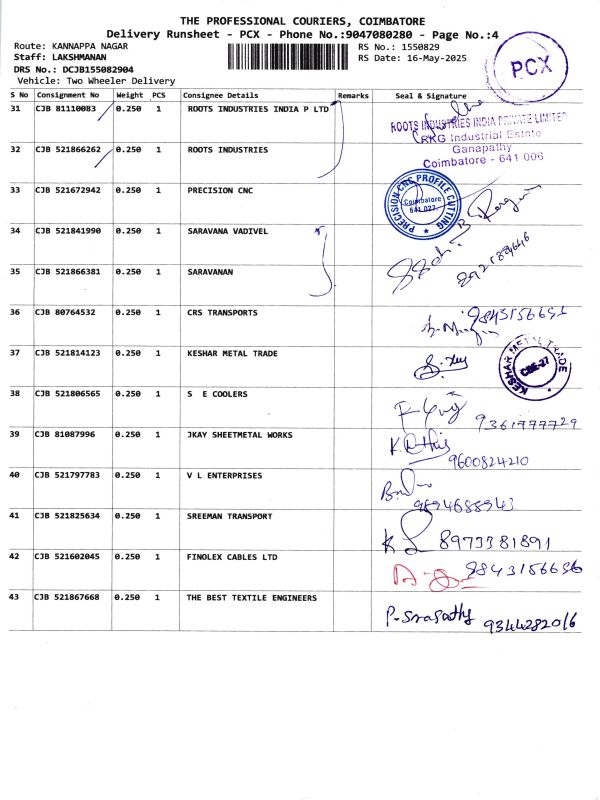 THE PROFESSIONAL COURIERS, COIMBATORE
Delivery Runsheet - PCX - Phone No.:9047080280 - Page No.:4
Route: KANNAPPA NAGAR RS No.: 1550829
Staff: LAKSHMANAN RS Date: 16-May-2025
DRS No.: DCJB155082904
Vehicle: Two Wheeler Delivery
PCX
S No Consignment No Weight PCS Consignee Details Remarks Seal & Signature
31 CJB 81110083 0.250 1 ROOTS INDUSTRIES INDIA P LTD
ROOTS INDUSTRIES INDIA PRIVATE LIMITED
RKG Industrial Estate
Ganapathy
Coimbatore - 641 006
32 CJB 521866262 0.250 1 ROOTS INDUSTRIES
33 CJB 521672942 0.250 1 PRECISION CNC
PRECISION CRS PROFILE CUTTING
Coimbatore
641 027
34 CJB 521841990 0.250 1 SARAVANA VADIVEL
35 CJB 521866381 0.250 1 SARAVANAN
36 CJB 80764532 0.250 1 CRS TRANSPORTS 9843156651
37 CJB 521814123 0.250 1 KESHAR METAL TRADE
KESHAR METAL TRADE
CBE-27
38 CJB 521806565 0.250 1 S E COOLERS 9361777729
39 CJB 81087996 0.250 1 JKAY SHEETMETAL WORKS 9600824210
40 CJB 521797783 0.250 1 V L ENTERPRISES 9894688943
41 CJB 521825634 0.250 1 SREEMAN TRANSPORT 8973381891
42 CJB 521602045 0.250 1 FINOLEX CABLES LTD 9843156656
43 CJB 521867668 0.250 1 THE BEST TEXTILE ENGINEERS 9344282016